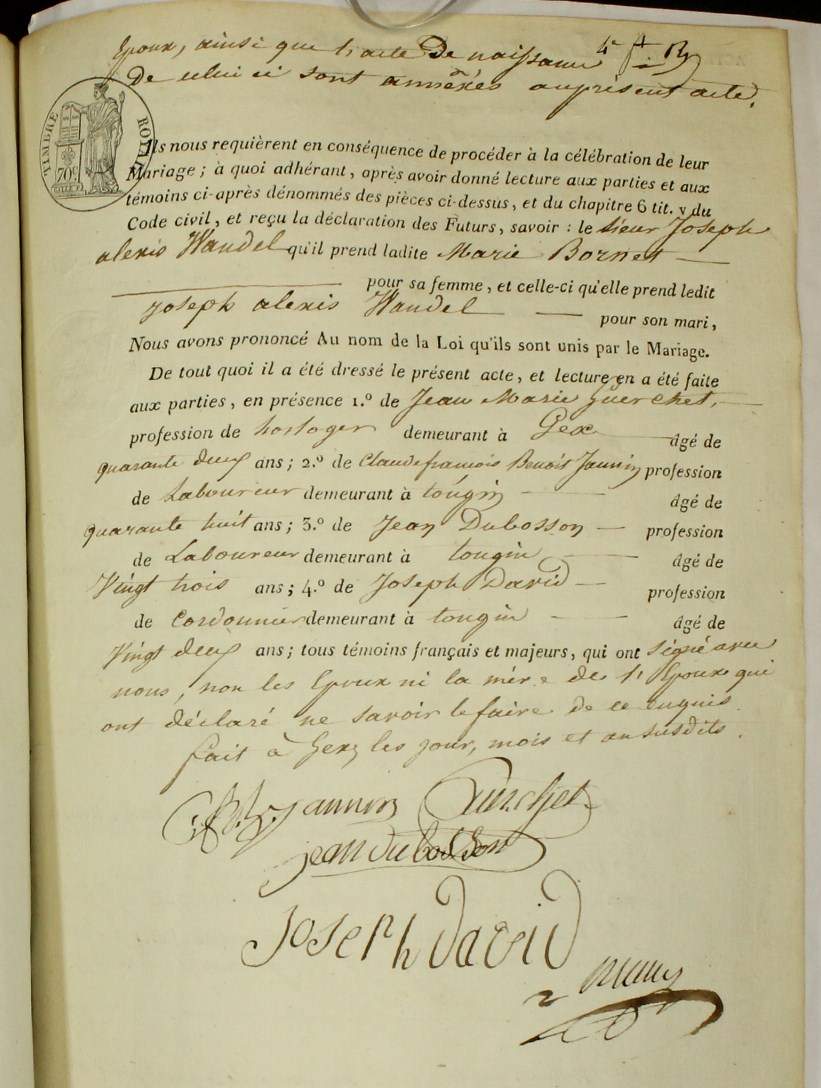 Epoux, ainsi que l'acte de naissance
de celui ci sont annéxés au présent acte.
TIMBRE ROYAL
70c
Ils nous requièrent en conséquence de procéder à la célébration de leur
Mariage ; à quoi adhérant, après avoir donné lecture aux parties et aux
témoins ci-après dénommés des pièces ci-dessus, et du chapitre 6 tit. v du
Code civil, et reçu la déclaration des Futurs, savoir : le sieur Joseph
alexis Wandel qu'il prend ladite Marie Bornet —
— pour sa femme, et celle-ci qu'elle prend ledit
Joseph alexis Wandel — pour son mari,
Nous avons prononcé Au nom de la Loi qu'ils sont unis par le Mariage.
De tout quoi il a été dressé le présent acte, et lecture en a été faite
aux parties, en présence 1.º de Jean Marie Guerchet, —
profession de horloger demeurant à Gex — âgé de
quarante deux ans ; 2.º de Claude francois Benoit Jannin profession
de Laboureur demeurant à tougin — — âgé de
quarante huit ans ; 3.º de Jean Dubosson — profession
de Laboureur demeurant à tougin — âgé de
Vingt trois ans ; 4.º de Joseph David — profession
de Cordonnier demeurant à tougin — — âgé de
Vingt deux ans ; tous témoins français et majeurs, qui ont signé avec
nous, non les Epoux ni la mère de l'Epouse qui
ont déclaré ne savoir le faire de ce enquis.
fait à Gex, les jour, mois et an susdits.
jannin Guerchet
jean dubosson
Joseph David